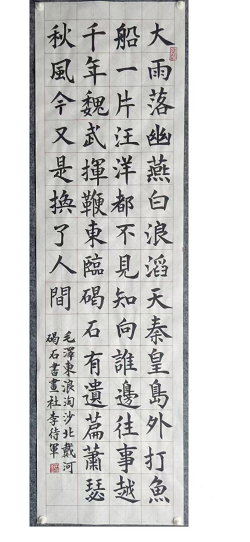 大雨落幽燕白浪滔天秦皇島外打魚
船一片汪洋都不見知向誰邊往事越
千年魏武揮鞭東臨碣石有遺篇蕭瑟
秋風今又是換了人間
毛澤東浪淘沙北戴河
碣石書畫社李待軍